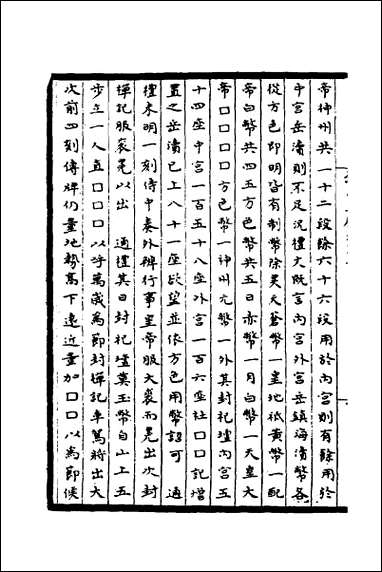 帝神州共一十二段餘六十六段用於內宮則有餘用於
中宮岳瀆則不足況禮文既言內宮外宮岳鎮海瀆幣各
從方色即明皆有制幣除昊天蒼幣一皇地祇黃幣一配
帝白幣共四五方色幣共五日赤幣一月白幣一天皇大
帝□□□□方色幣一神州元幣一外其封祀壇內宮五
十四座中宮一百五十八座外宮一百六座社□□記增
置之岳瀆已上八十一座欲望並依方色用幣詔可 通
禮未明一刻侍中奏外辨行事皇帝服大裘而冕出次封
禪記服袞冕以出 通禮其日封祀壇奠玉幣自山上五
步立一人直□□□以呼萬歲為節封禪記車駕將出大
次前四刻傳牌仍量地勢高下遠近量加□□以為節候